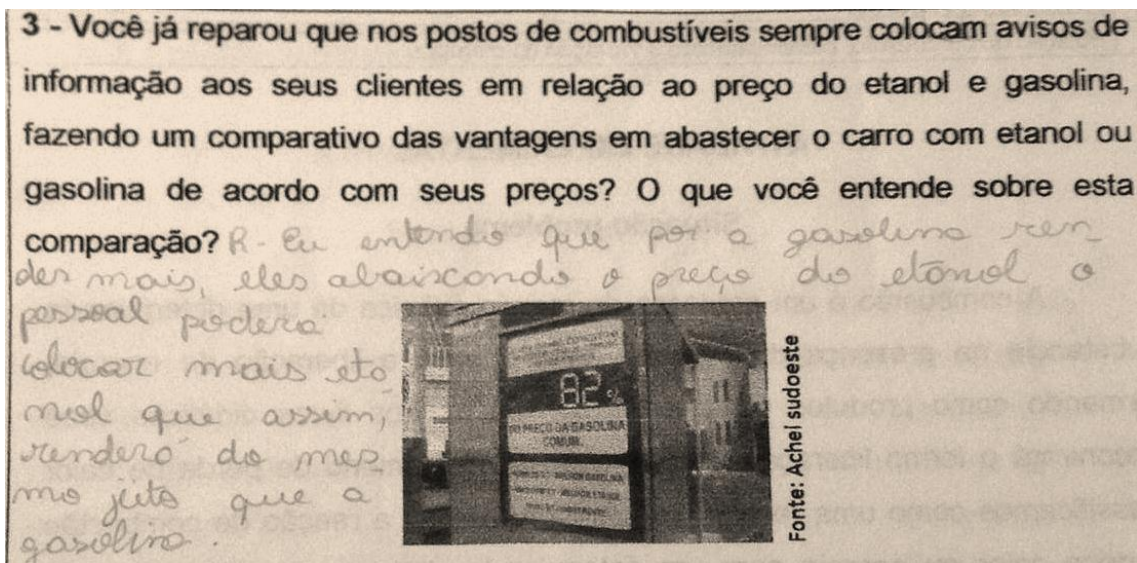 3 - Você já reparou que nos postos de combustíveis sempre colocam avisos de
informação aos seus clientes em relação ao preço do etanol e gasolina,
fazendo um comparativo das vantagens em abastecer o carro com etanol ou
gasolina de acordo com seus preços? O que você entende sobre esta
comparação? R - Eu entendo que por a gasolina ren_
der mais, eles abaixando o preço do etanol o
pessoal podera
colocar mais eta
nol que assim,
renderá do mes
mo jeito que a
gasolina.
82 %
PREÇO DA GASOLINA
COMUM
Fonte: Achei sudoeste